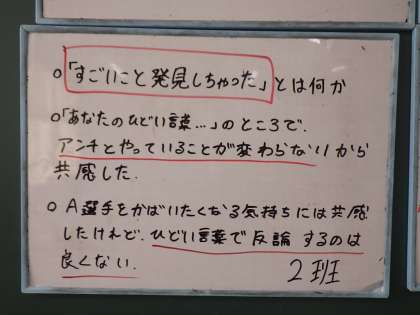 ○「すごいこと発見しちゃった」とは何か
○「あなたのひどい言葉…」のところで、
アンチとやっていることが変わらないから
共感した。
○ A選手をかばいたくなる気持ちには共感
したけれど、ひどい言葉で反論するのは
良くない。
2班